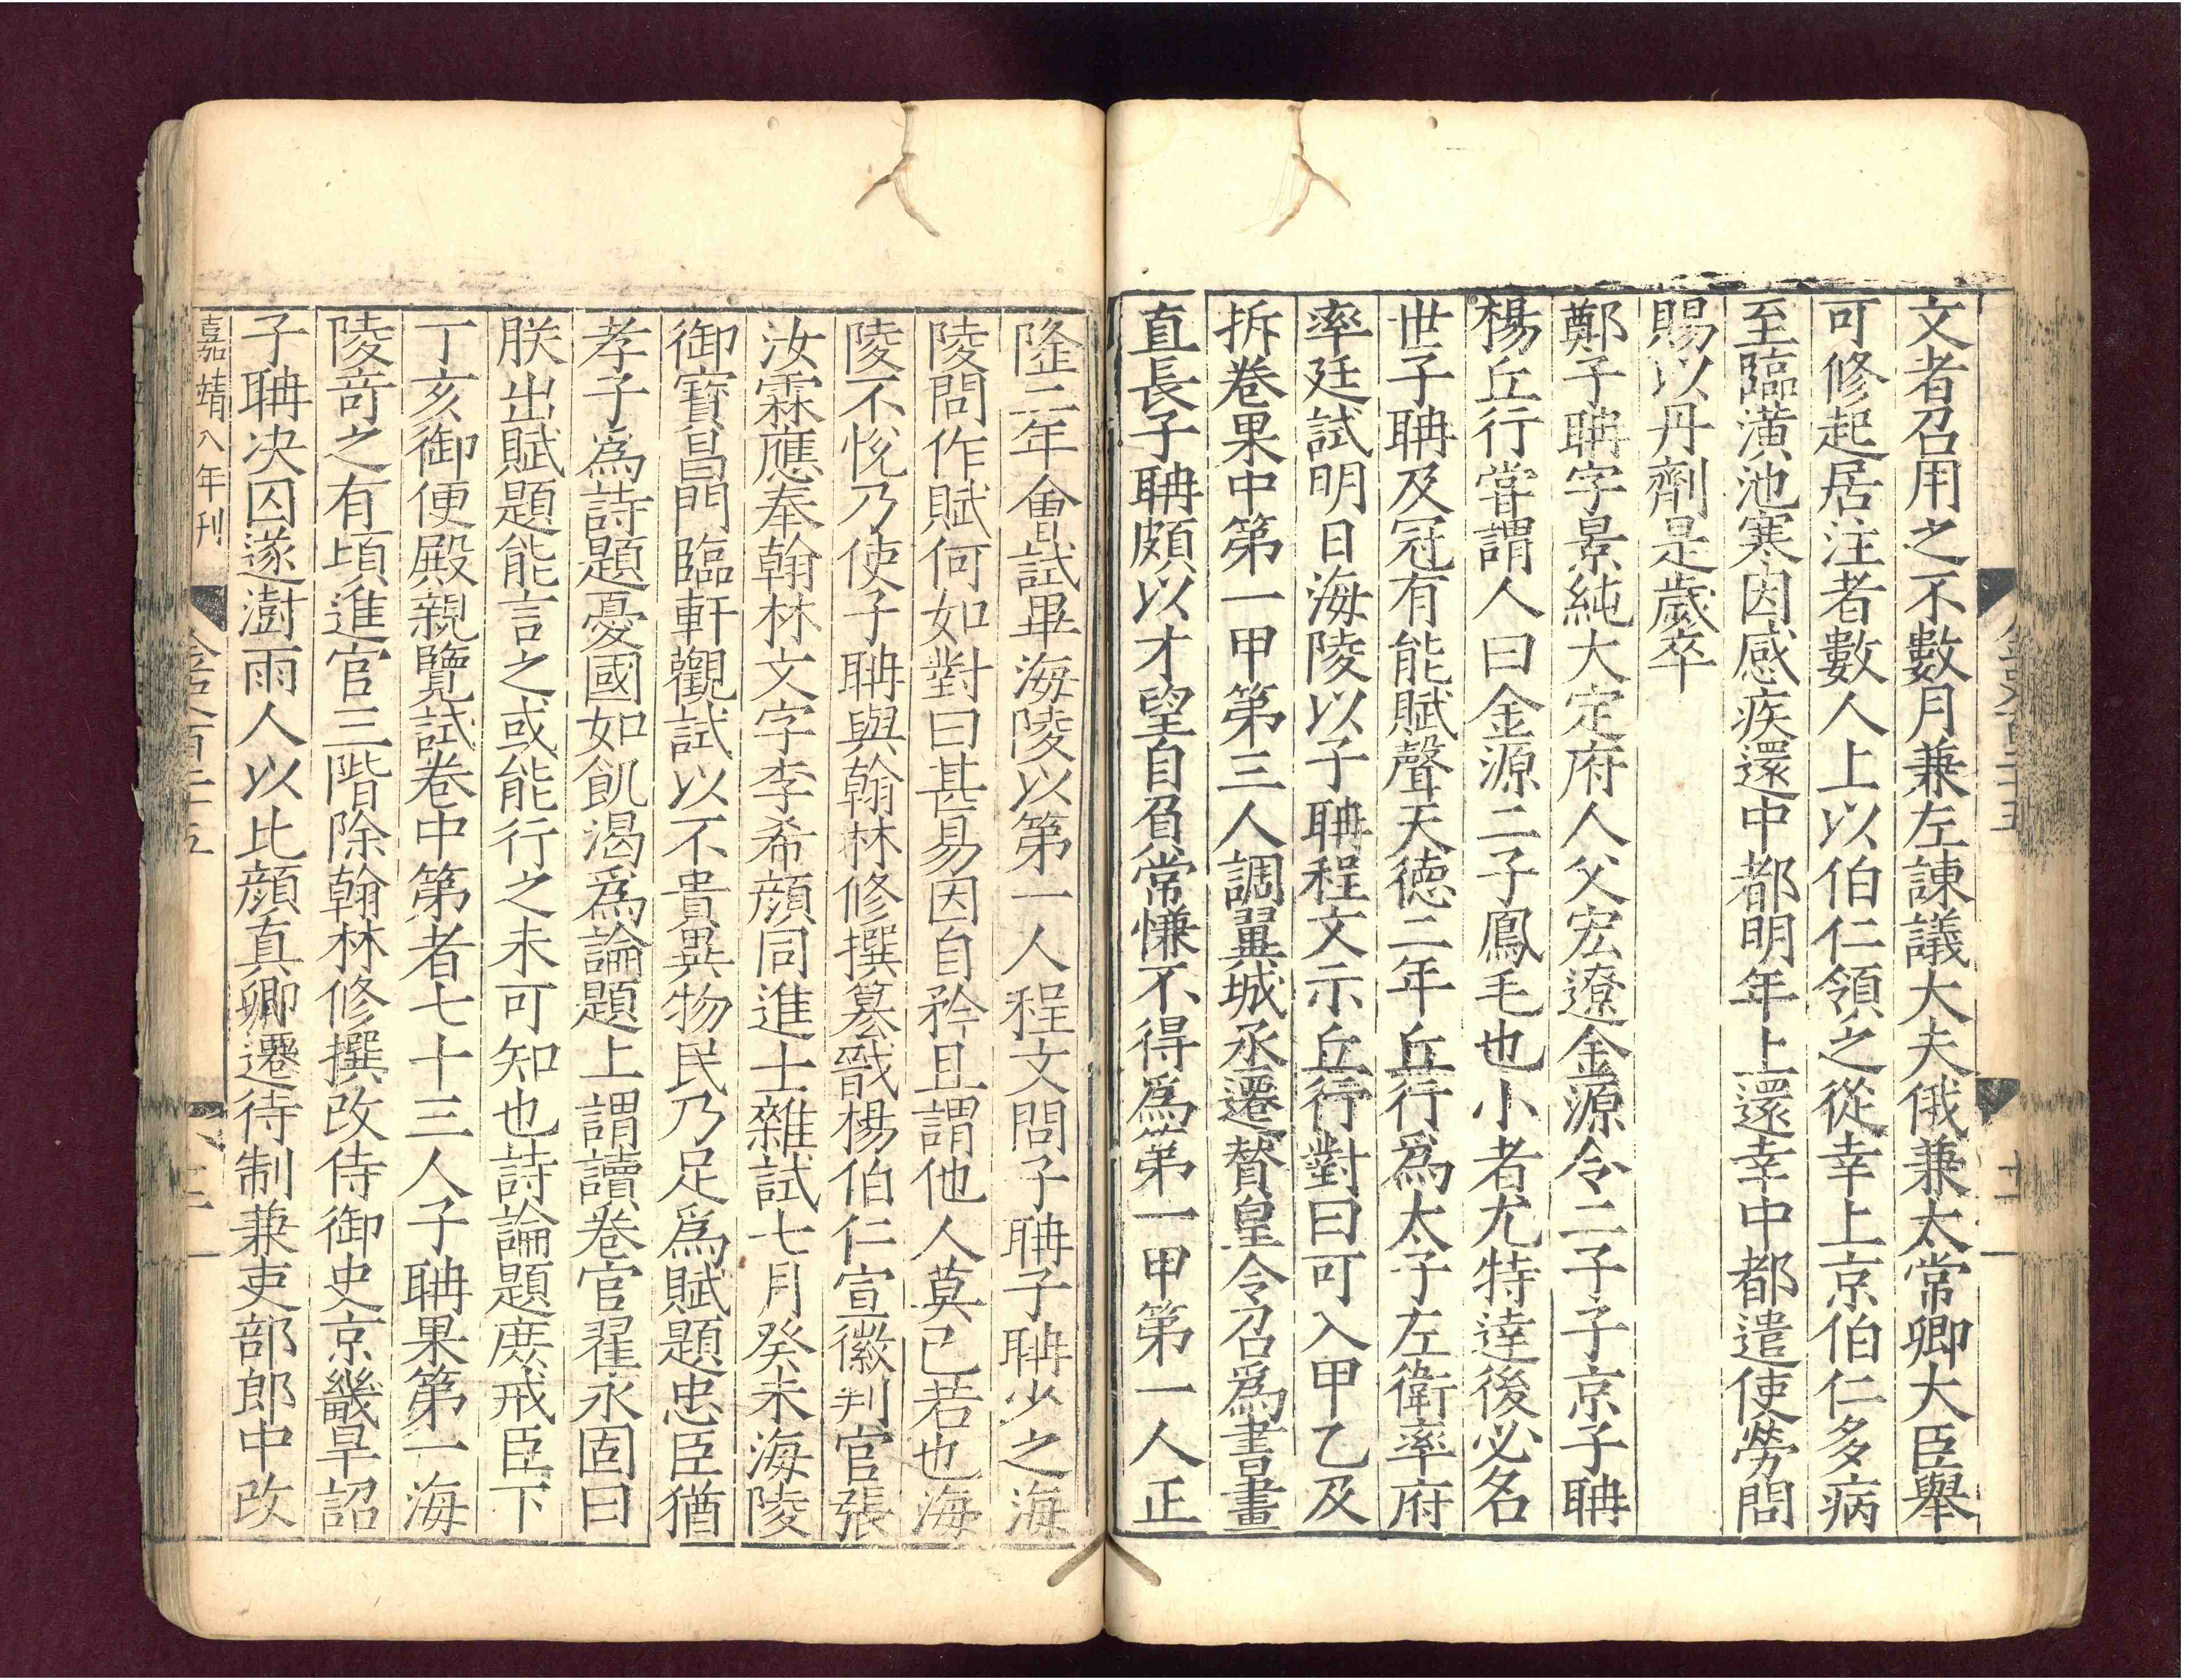 文者召用之不數月兼左諫議大夫俄兼太常卿大臣舉
可修起居注者數人上以伯仁領之從幸上京伯仁多病
至臨潢池寒因感疾還中都明年上還幸中都遣使勞問
賜以丹劑是歲卒
鄭子聃字景純大定府人父宏遼金源令二子子京子聃
楊丘行嘗謂人曰金源二子鳳毛也小者尤特達後必名
世子聃及冠有能賦聲天德二年丘行爲太子左衛率府
率廷試明日海陵以子聃程文示丘行對曰可入甲乙及
拆卷果中第一甲第三人調翼城丞遷贊皇令召爲書畫
直長子聃頗以才望自負常慊不得爲第一甲第一人正
隆二年會試畢海陵以第一人程文問子聃子聃少之海
陵問作賦何如對曰甚易因自矜且謂他人莫己若也海
陵不悅乃使子聃與翰林修撰綦戩楊伯仁宣徽判官張
汝霖應奉翰林文字李希顔同進士雜試七月癸未海陵
御寳昌門臨軒觀試以不貴異物民乃足爲賦題忠臣猶
孝子爲詩題憂國如飢渴爲論題上謂讀卷官翟永固曰
朕出賦題能言之或能行之未可知也詩論題庶戒臣下
丁亥御便殿親覽試卷中第者七十三人子聃果第一海
陵奇之有頃進官三階除翰林修撰改侍御史京畿旱詔
子聃決囚遂澍雨人以比顔真卿遷待制兼吏部郎中改
嘉靖八年刊